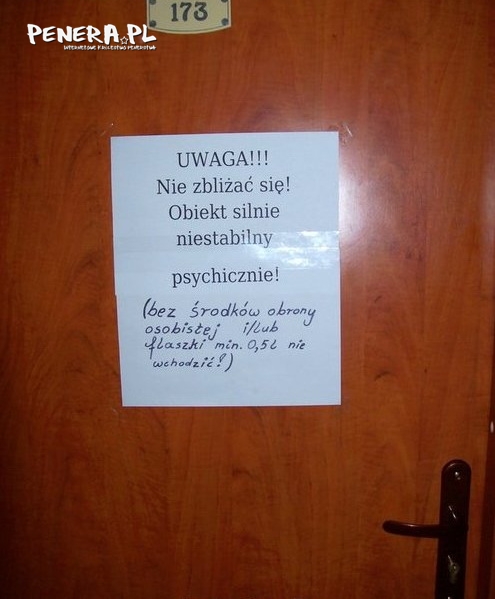 173
PENERA.PL
INTERNETOWE KRÓLESTWO PENERSTWA
UWAGA!!!
Nie zbliżać się!
Obiekt silnie
niestabilny
psychicznie!
(bez środków obrony
osobistej i/lub
flaszki min. 0,5l nie
wchodzić!)